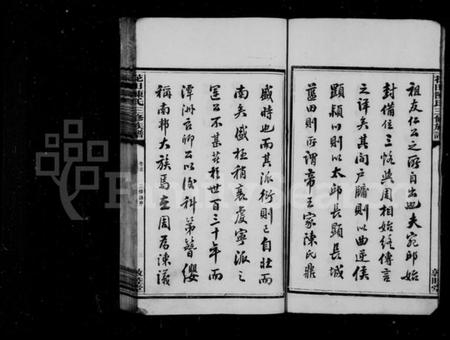 祖友仁公之所自出也夫宛邱始
封備位三恪與周相始終傳言
之詳矣其間戶牖則以曲逆侯
顯潁川則以太邱長顯長城
藍田則所謂帝王家陳氏鼎
盛時也而其派衍則已自北而
南矣盛極稍衰虞寧派之
匡公不甚著於世百三十年而
潭洲
以儒科第簪纓
稱南邦大族焉
周居陳議
FamilySearch